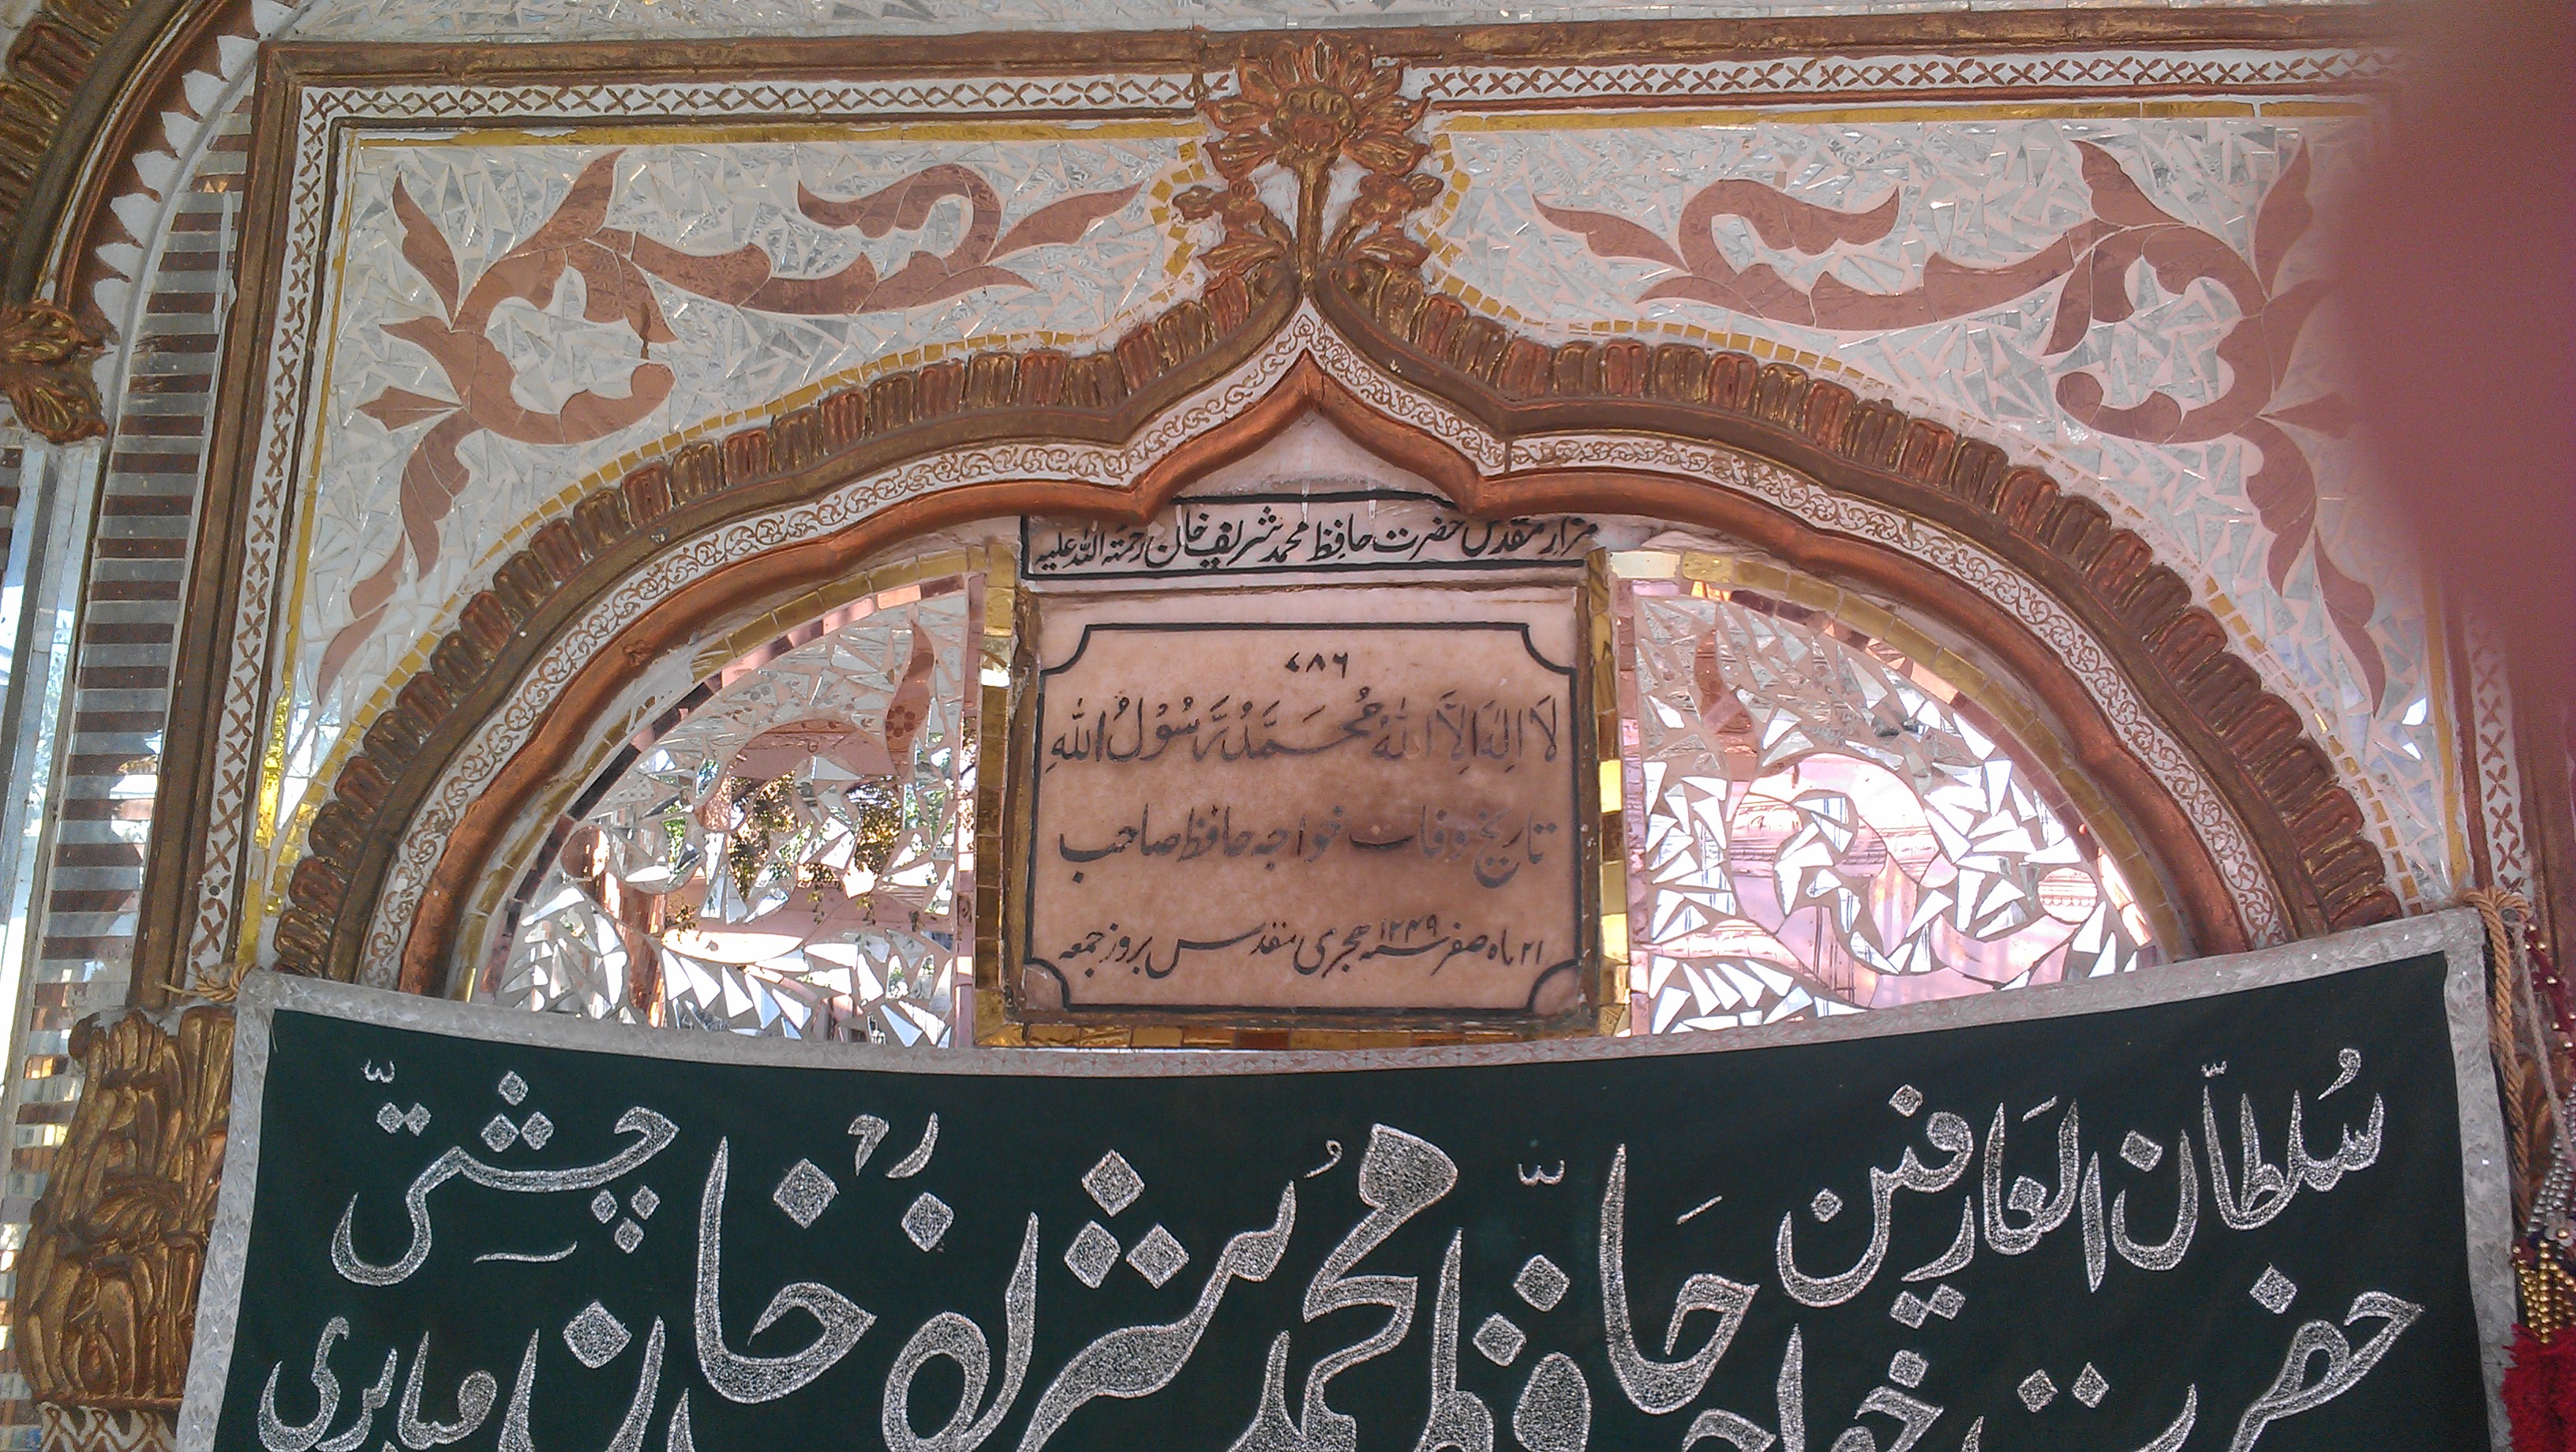 مزار مقدس حضرت حافظ محمد شریف خان رحمتہ اللہ علیہ
۷۸۶
لَا اِلٰهَ اِلَّا اللهُ مُحَمَّدُ رَّسُوْلُ اللهِ
تاریخ وفات خواجہ حافظ صاحب
۲۱ ماہ صفر ۱۲۴۹ سنہ ہجری مقدس بروز جمعہ
سُلطان العَارِفین حَافظ محمدُ شریف خان رح چشتیّ
حضرت خواجہ صابری